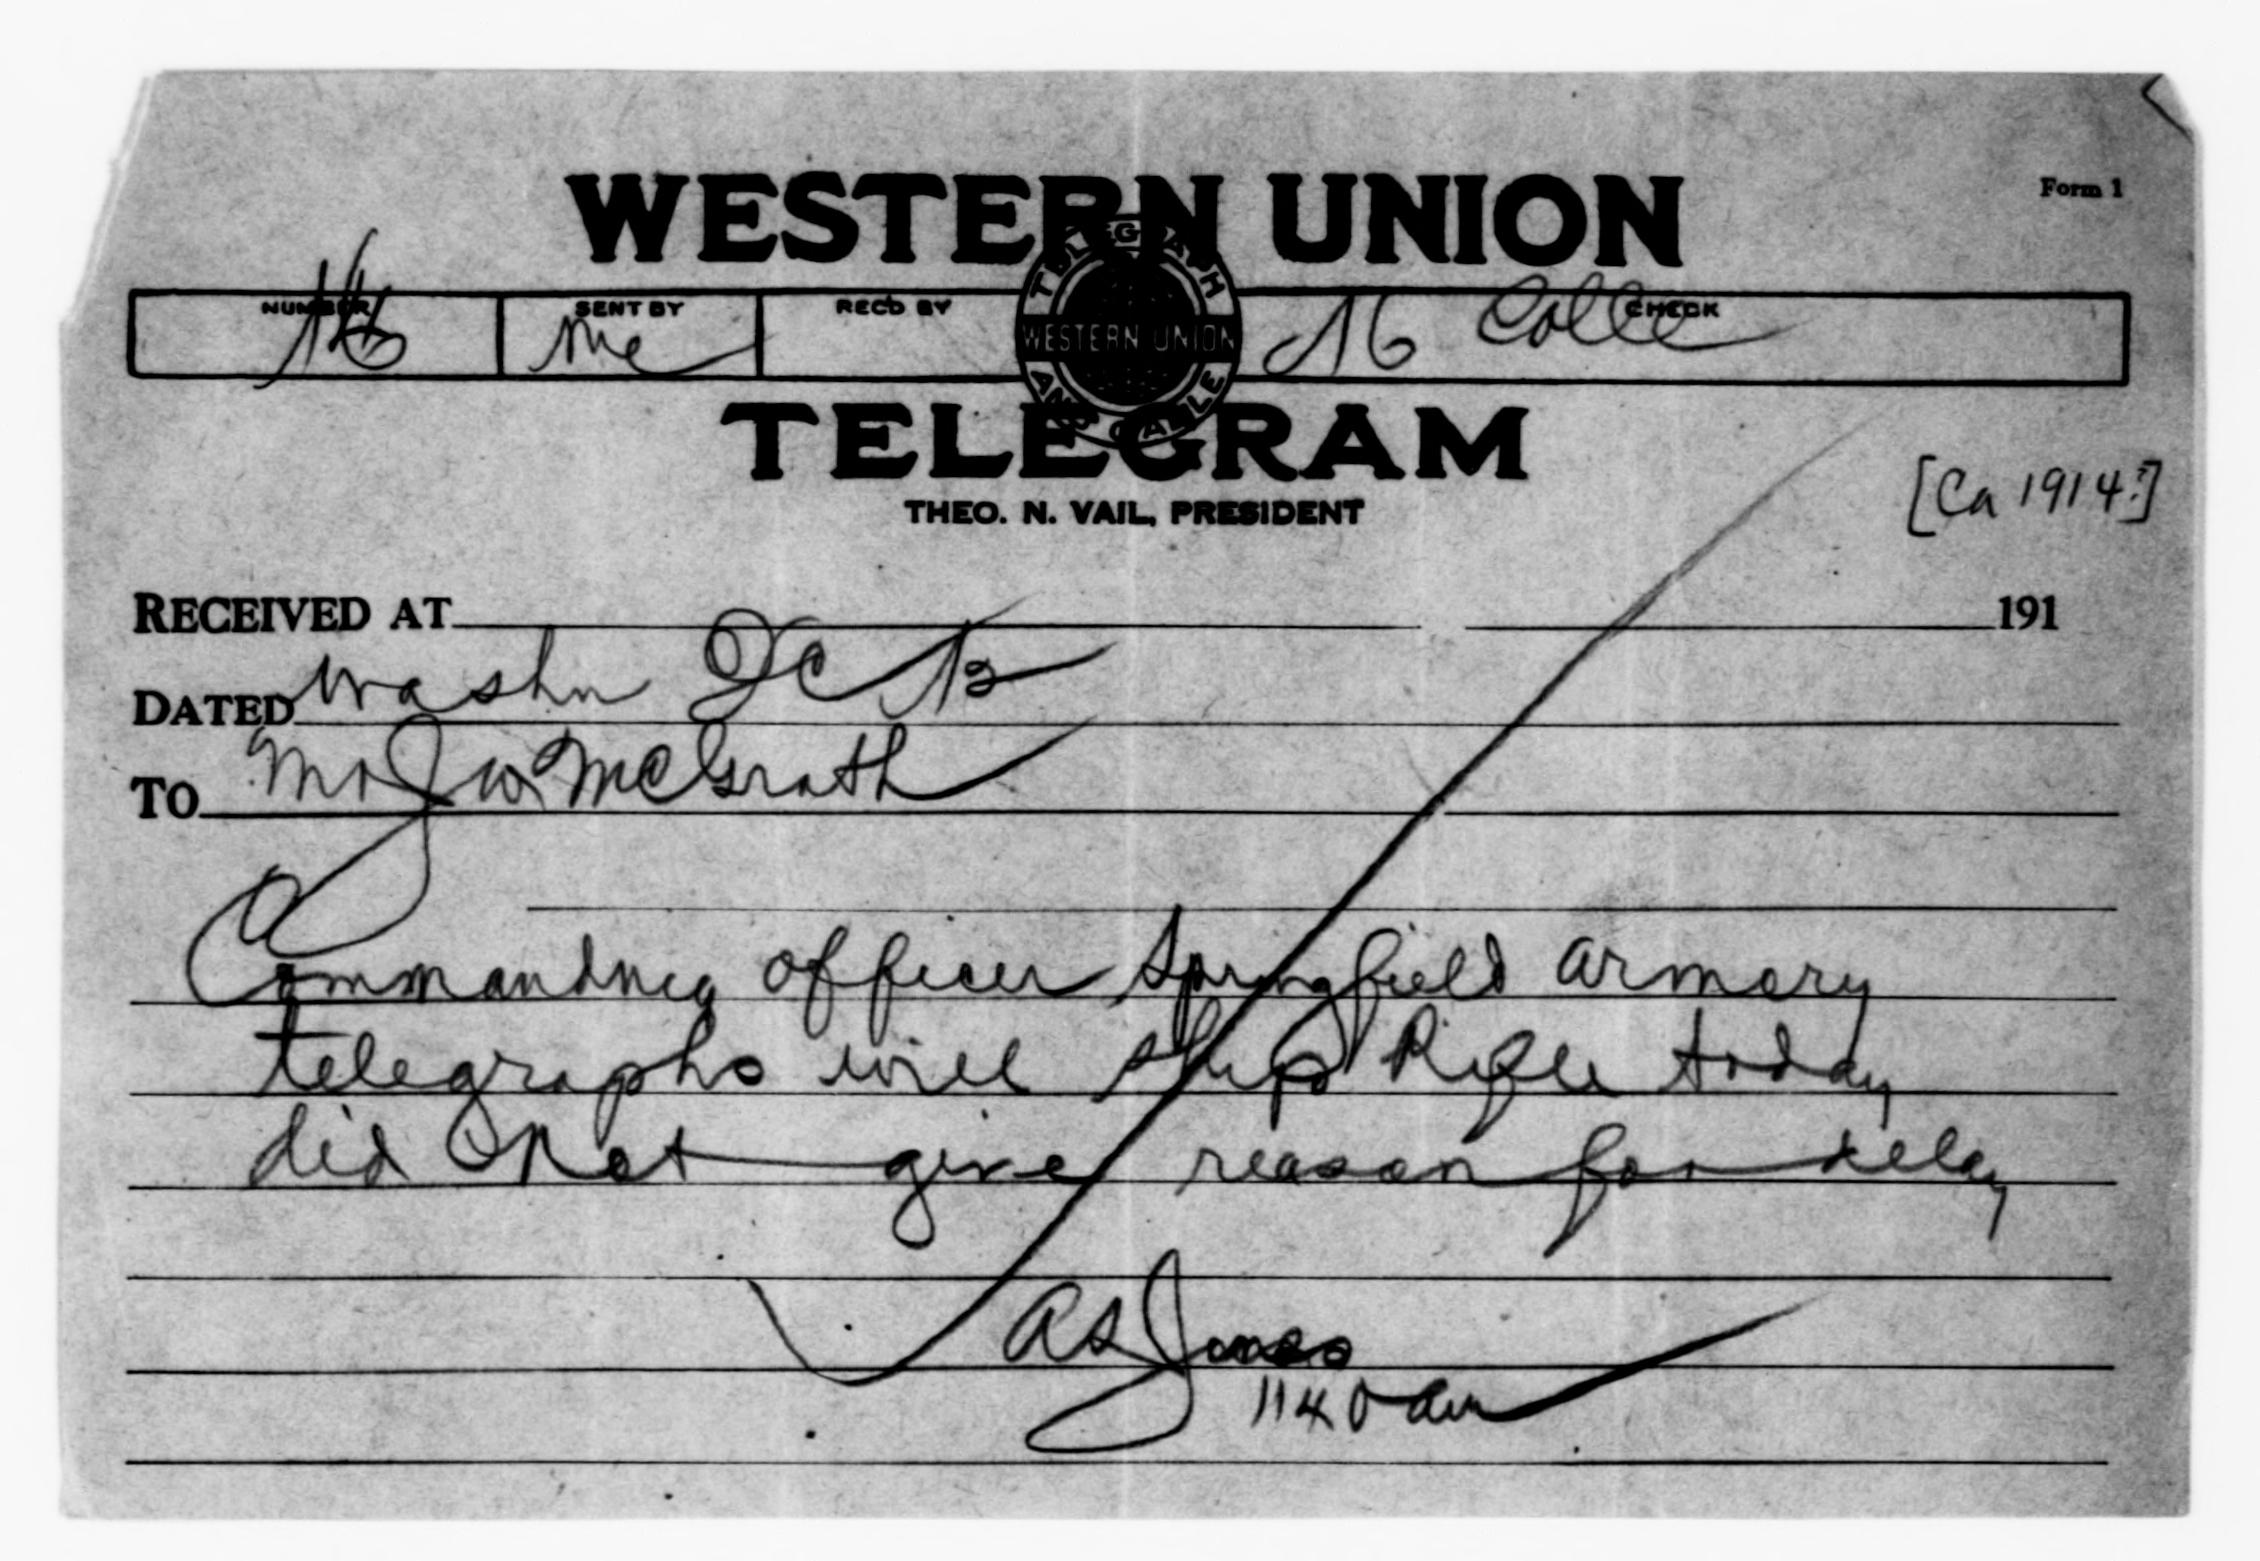 WESTERN UNION
Form 1
NUMBER SENT BY REC'D BY CHECK
Mc 16 Colle
TELEGRAPH AND CABLE
WESTERN UNION
TELEGRAM
THEO. N. VAIL, PRESIDENT
[Ca 1914?]
RECEIVED AT 191
DATED Washn DC 12
TO Mr J W McGrath
Commanding officer Springfield armory
telegraphs will ship Rifle today
did not give reason for delay
AS Jones
1140 am